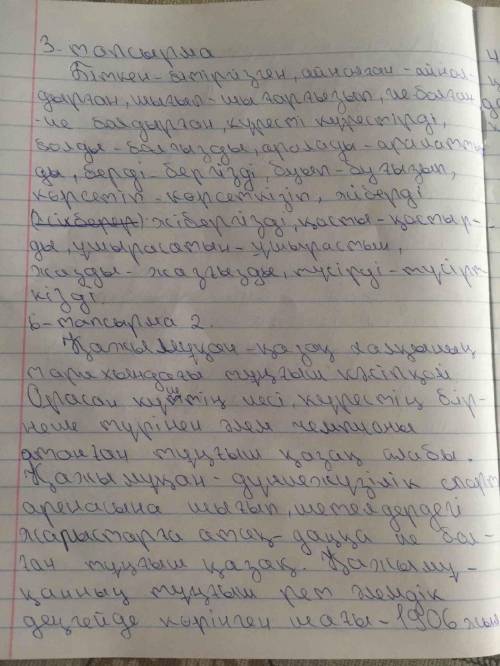 3-тапсырма
Біткен-бітірізген, айналған-айнал-
дырған, шығып-шығарғызып, ие болған
-ие болдырған, күресті күрестірді,
болды-болғызды, аралады-аралатты
ды, берді-бергізді, буып-буғызып,
көрсетіп-көрсеткізіп, жіберді
жібергізді, қосты-қостыр-
ды, ұшырасатын-ұшырастып,
жазды-жазғызды, түсірді-түсірт
кізді.
6-тапсырма 2.
Қажымұқан-қазақ халқының
тарихындағы тұңғыш кәсіпқой
Орасан күштің иесі, күрестің бір-
неше түрінен әлем чемпионы
атанған тұңғыш қазақ алыбы.
Қажымұқан-дүниежүзілік спорт
аренасына шығып, шетелдердегі
жарыстарға атақ-даңққа ие бол-
ған тұңғыш қазақ. Қажымұ-
қанның тұңғыш рет әлемдік
деңгейде көрінген шағы-1906 жыл